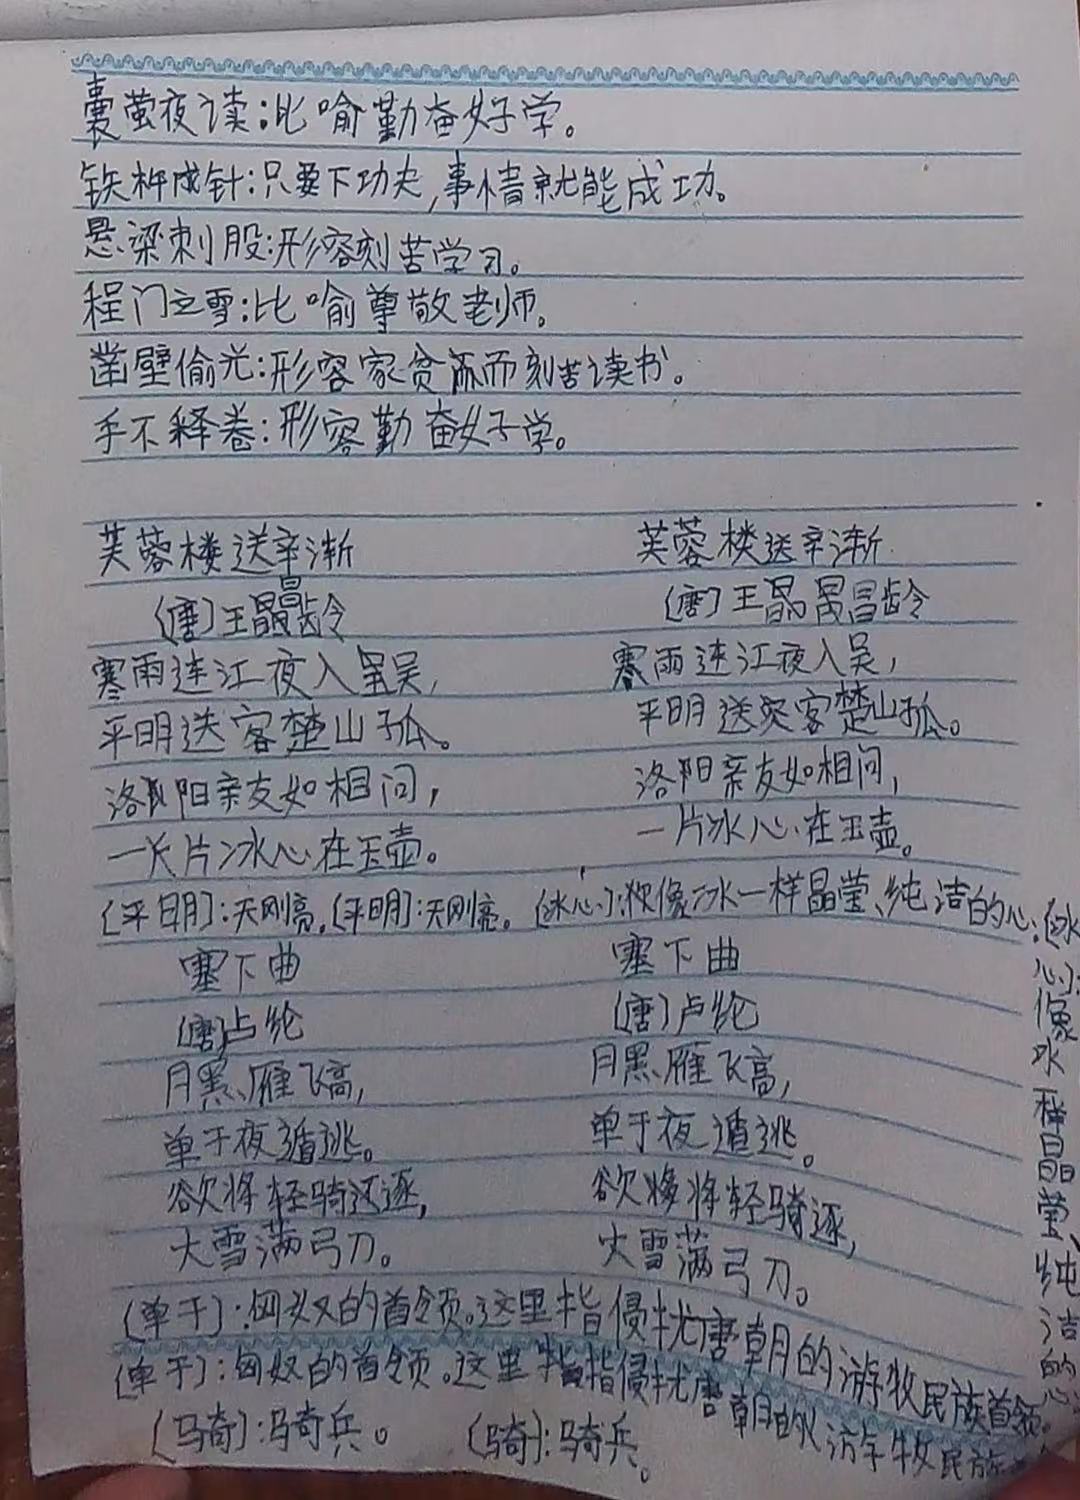 囊萤夜读:比喻勤奋好学。
铁杵成针:只要下功夫,事情就能成功。
悬梁刺股:形容刻苦学习。
程门立雪:比喻尊敬老师。
凿壁偷光:形容家贫而刻苦读书。
手不释卷:形容勤奋好学。
芙蓉楼送辛渐 芙蓉楼送辛渐
(唐)王龄 (唐)王昌龄
寒雨连江夜入吴, 寒雨连江夜入吴,
平明送客楚山孤。 平明送客楚山孤。
洛阳亲友如相问, 洛阳亲友如相问,
一片冰心在玉壶。 一片冰心在玉壶。
(平明):天刚亮。(平明):天刚亮。(冰心):像冰一样晶莹、纯洁的心。(冰
心):像冰一样晶莹、纯洁的心
塞下曲 塞下曲
(唐)卢纶 (唐)卢纶
月黑雁飞高, 月黑雁飞高,
单于夜遁逃。 单于夜遁逃。
欲将轻骑逐, 欲将轻骑逐,
大雪满弓刀。 大雪满弓刀。
(单于):匈奴的首领。这里指侵扰唐朝的游牧民族首领。
(单于):匈奴的首领。这里指侵扰唐朝的游牧民族
(骑):骑兵。 (骑):骑兵。